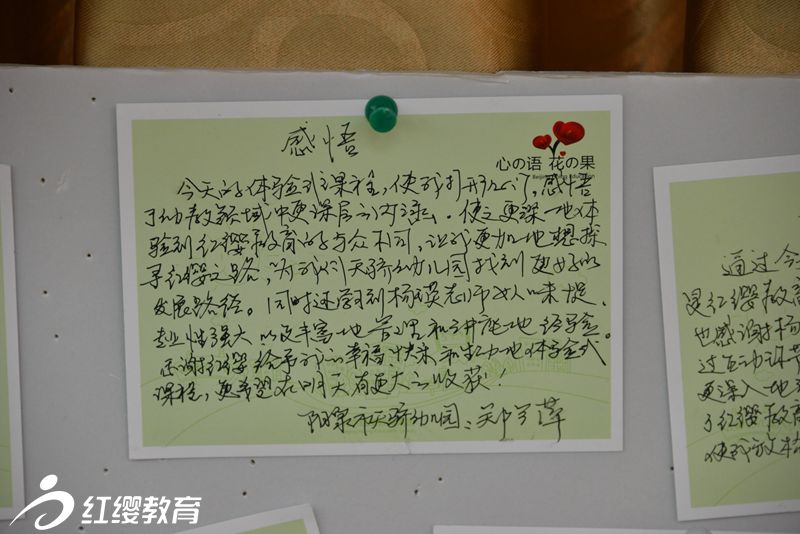 感悟
心の语 花の果
今天的体验式课程,使我打开心门,感悟
了幼教领域中更深层的内涵。使之更深一地体
验到红缨教育的与众不同,让我更加地想探
寻红缨之路,为我们天骄幼儿园找到更好的
发展路径。同时还学到杨瑛老师
专业性强大 以及丰富地 和 地 经验。
感谢红缨给予我的幸福快来和 地体验式
课程,更希望在明天有更大的收获!
阳泉市天骄幼儿园:郑
通过今
灵红缨教育
也感谢杨
过互动环节
更深入地
了红缨教育
使我放
红缨教育